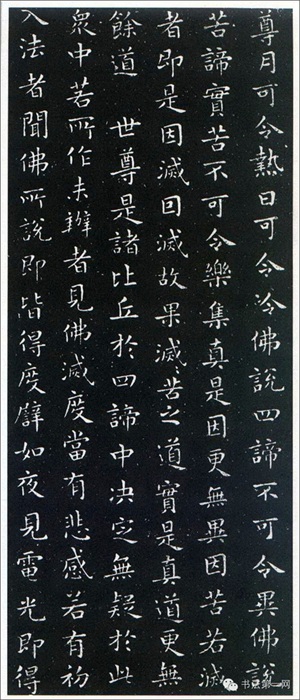 尊月可令熱日可令冷佛說四諦不可令異佛說
苦諦實苦不可令樂集真是因更無異因苦若滅
者即是因滅因滅故果滅滅苦之道實是真道更無
餘道 世尊是諸比丘於四諦中决定無疑於此
眾中若所作未辦者見佛滅度當有悲感若有初
入法者聞佛所說即皆得度譬如夜見電光即得
书法第一网